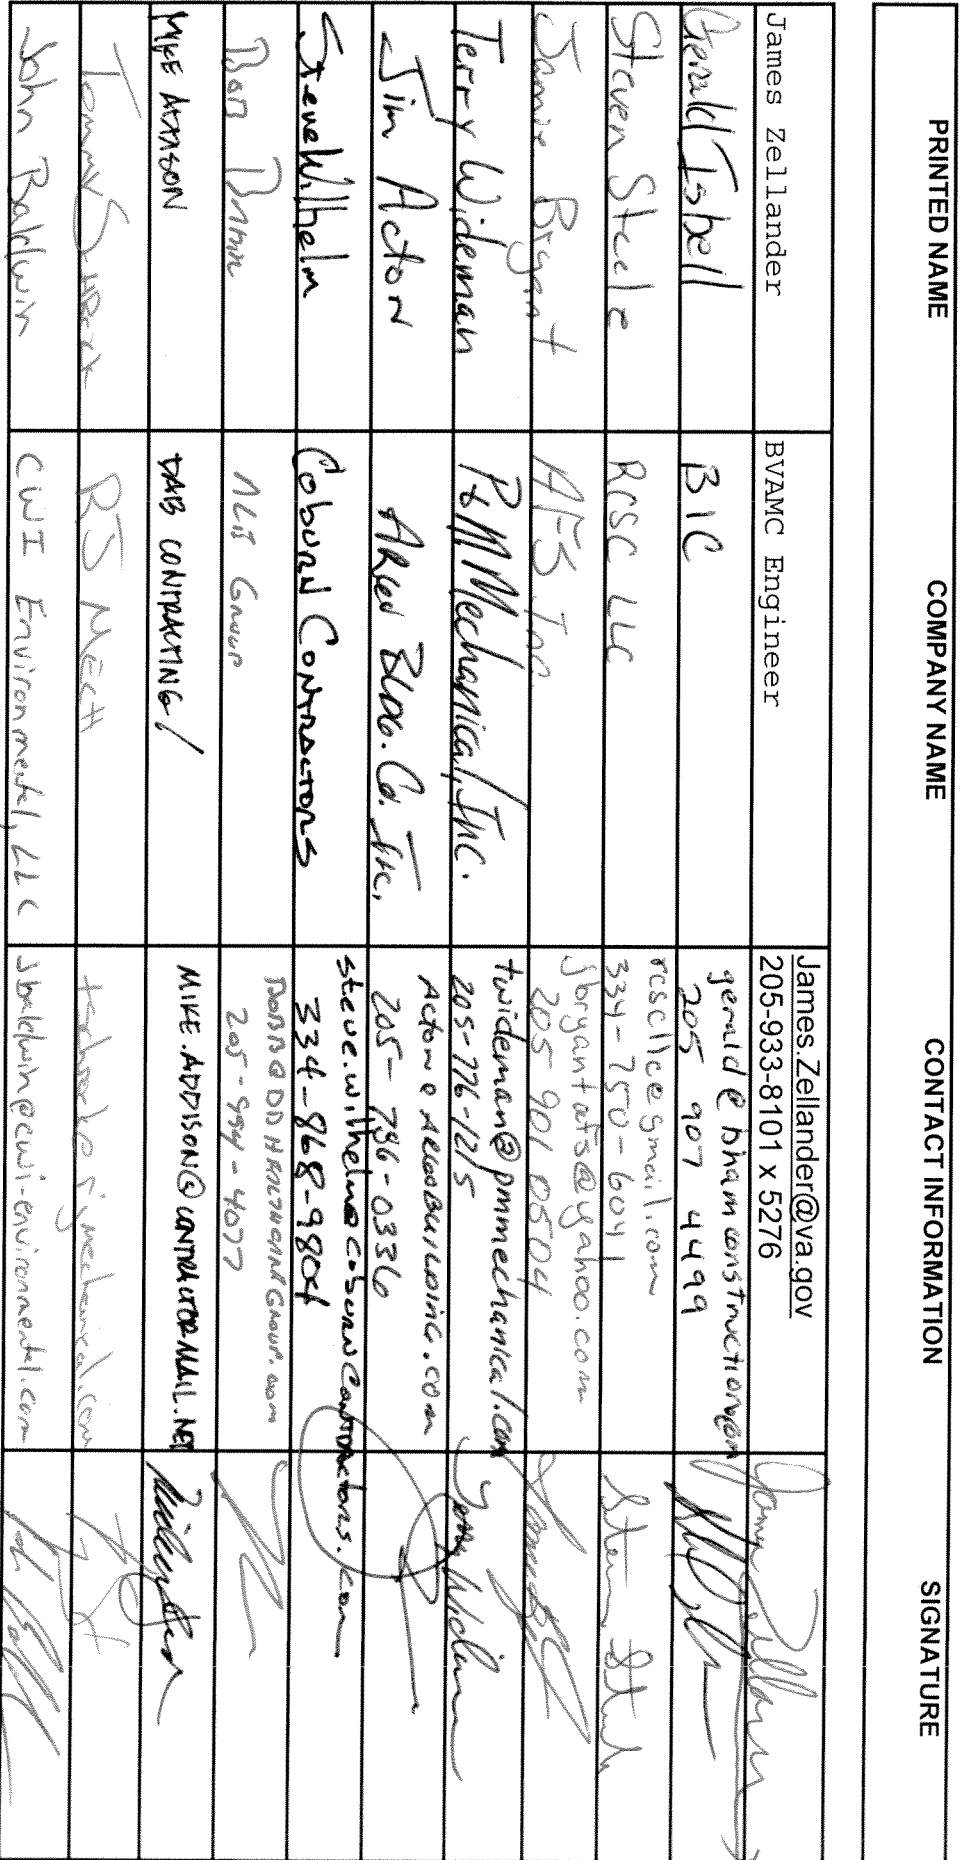 PRINTED NAME COMPANY NAME CONTACT INFORMATION SIGNATURE
James Zellander BVAMC Engineer James.Zellander@va.gov
205-933-8101 x 5276
Gerald Isbell BIC gerald@bhamconstruction.com
205 907 4499
Steven Steele RCSC LLC rcscllc@gmail.com
334-750-6041
Jamie Bryant AFS Inc. jbryantafs@yahoo.com
205-901 0550
Terry Wideman P&M Mechanical, Inc. twideman@pmmechanical.com
205-776-1215
Jim Acton Argo Bldg. Co. Inc. Acton@ArgoBuilding.com
205-786-0336
Steve Wilhelm Coburn Contractors steve.wilhelm@CoburnContractors.com
334-868-9804
Group
205-994-4077
MIKE ADDISON DAB CONTRACTING MIKE.ADDISON@CONTRACTORMAIL.NET
Tommy RJ MECH
John Baldwin CWI Environmental, LLC jbaldwin@cwi-environmental.com